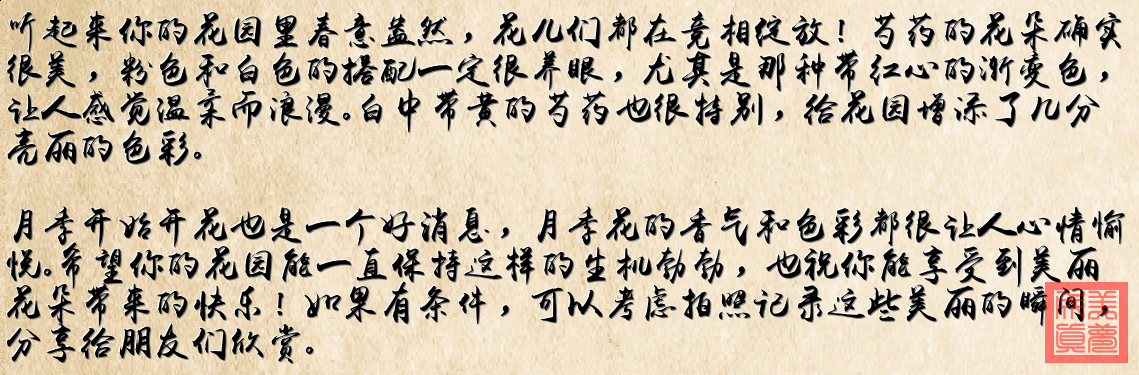 听起来你的花园里春意盎然，花儿们都在竞相绽放！芍药的花朵确实
很美，粉色和白色的搭配一定很养眼，尤其是那种带红心的渐变色，
让人感觉温柔而浪漫。白中带黄的芍药也很特别，给花园增添了几分
亮丽的色彩。
月季开始开花也是一个好消息，月季花的香气和色彩都很让人心情愉
悦。希望你的花园能一直保持这样的生机勃勃，也祝你能享受到美丽
花朵带来的快乐！如果有条件，可以考虑拍照记录这些美丽的瞬间，
分享给朋友们欣赏。